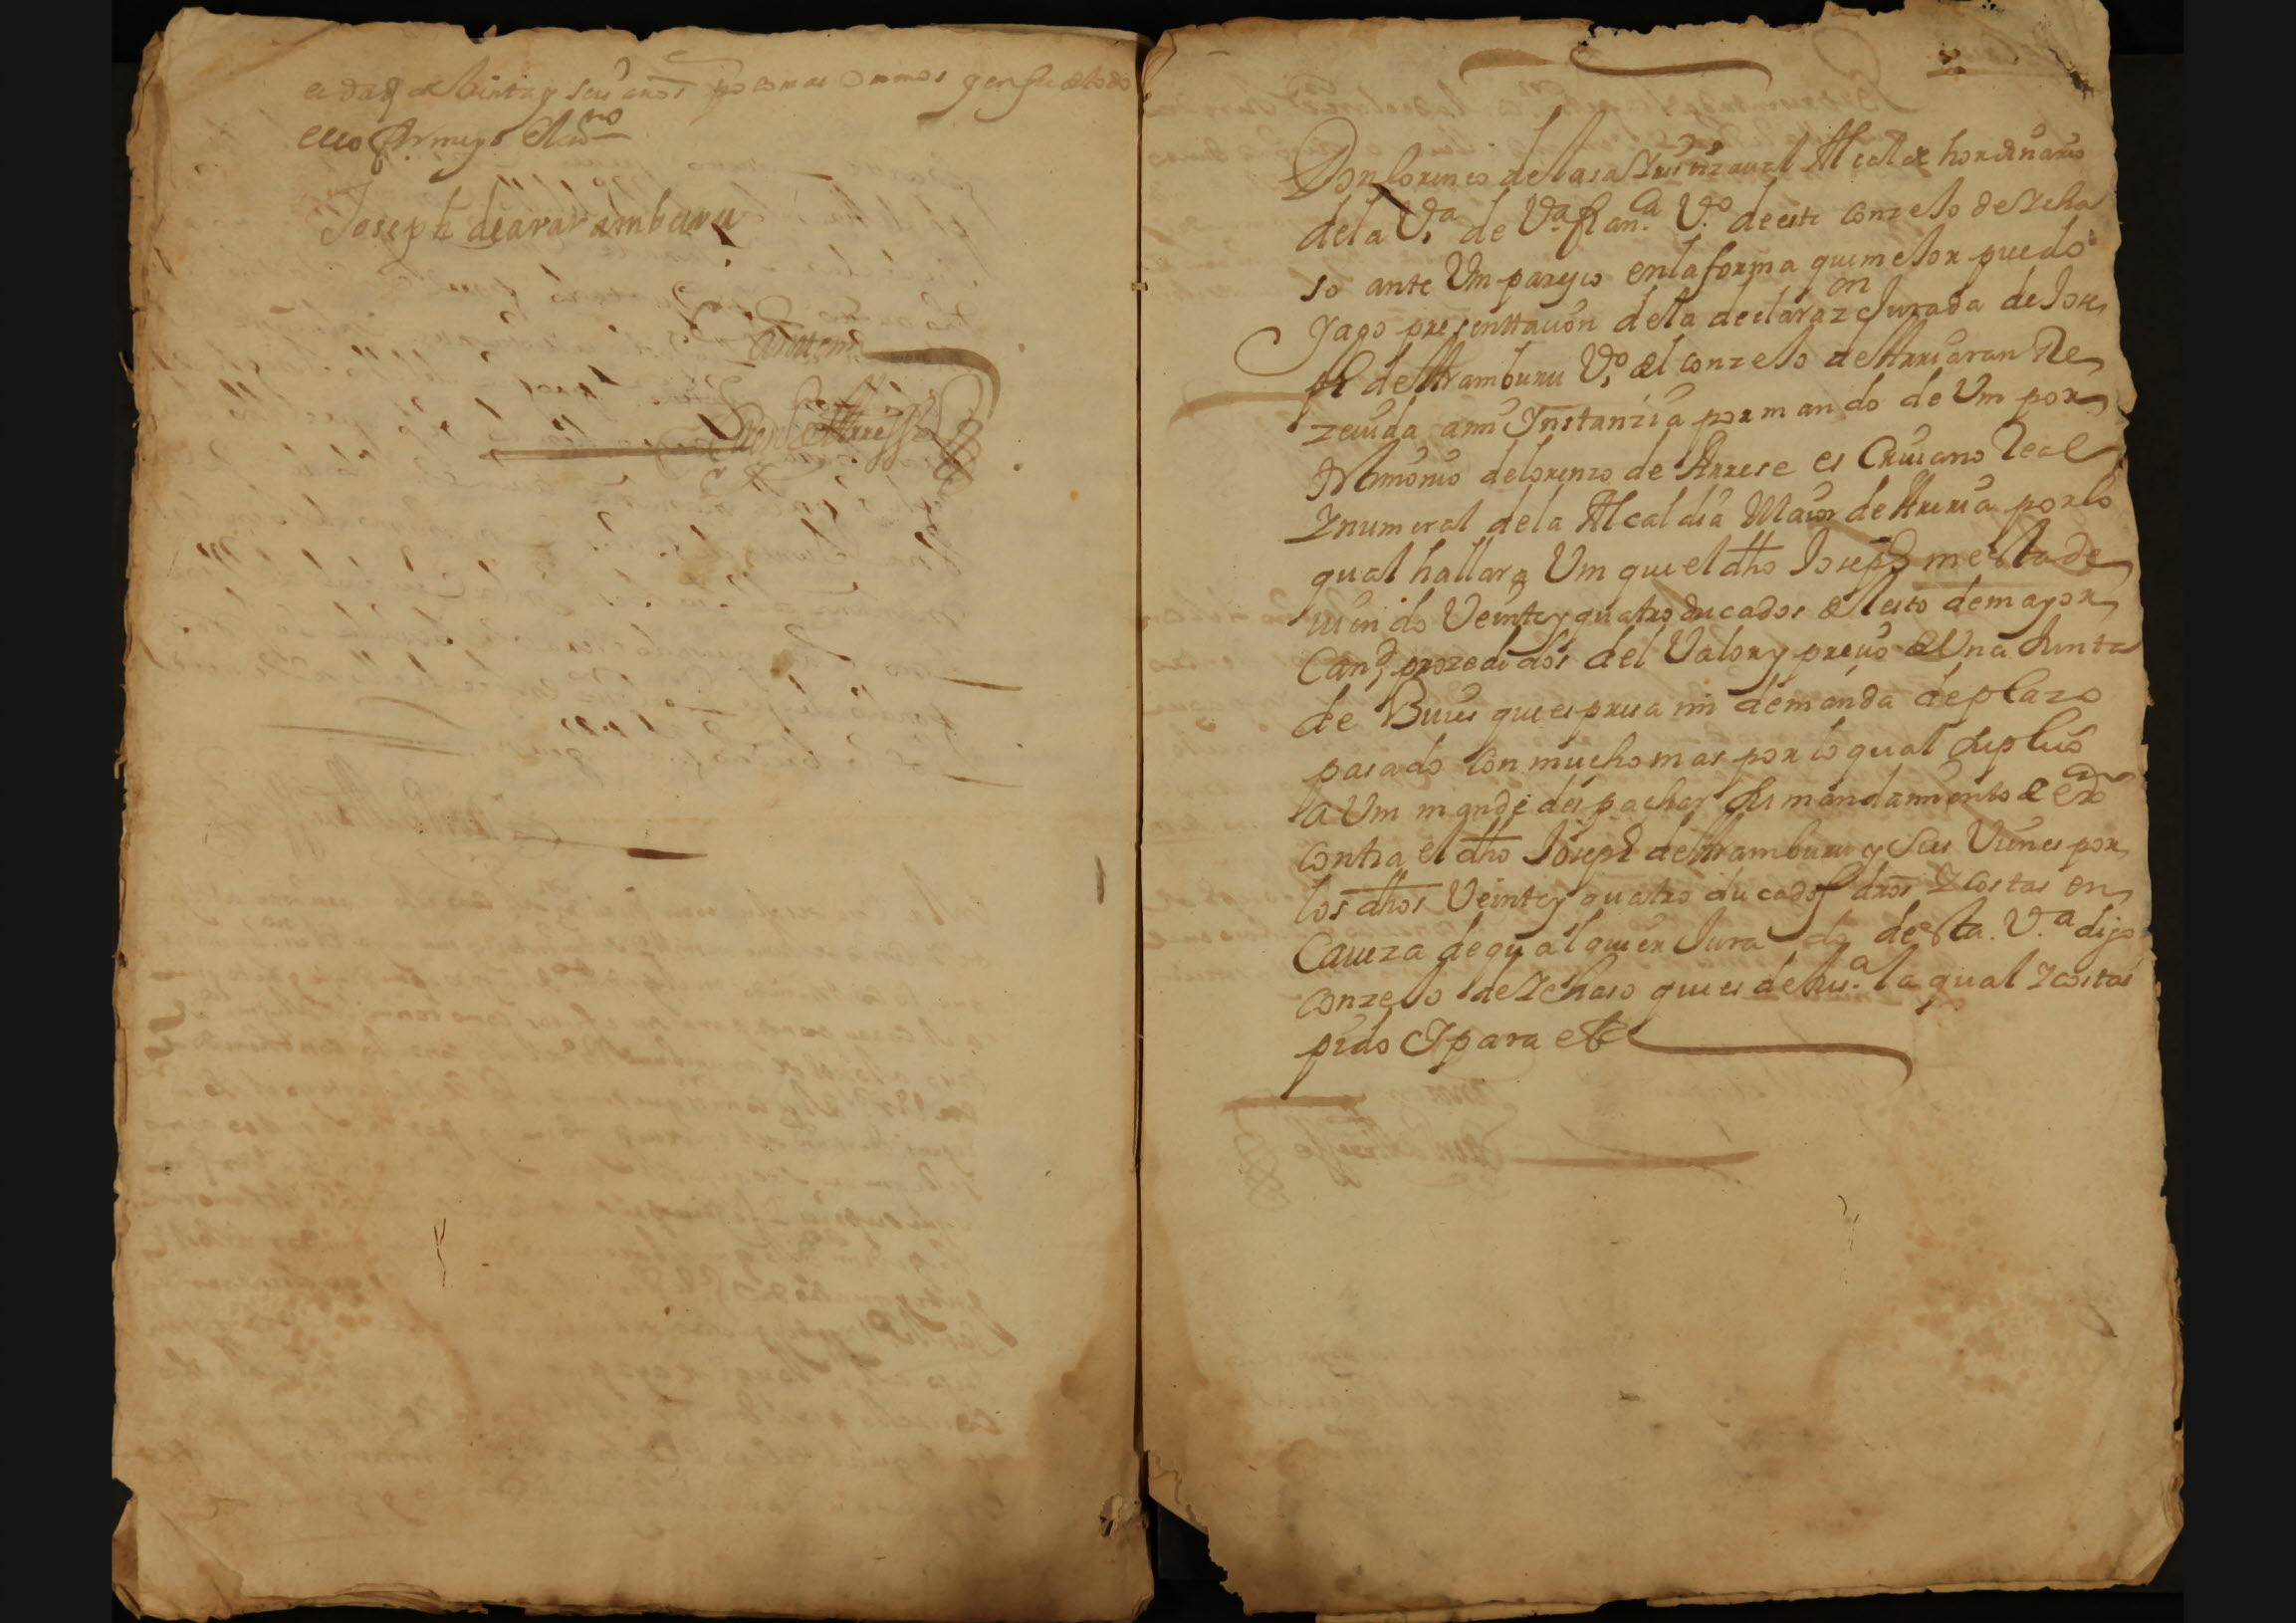 edad de treinta y seis años poco mas o menos y en fee de todo
ello firme yo el ess.no
Joseph de ararambaru
Ante mi
Lorenzo de Arresse
Don Lorenco de lasa Yrinzaual Alcalde hordinario
de la V.a de V.a fran.ca V.o de este conzejo de Ycha
so ante Vm parezco en la forma que mejor puedo
Y ago presenttacion de la declaraz.on Jurada de Jose
ph de Aramburu V.o del conzejo de Arriaran Re
zeuida a mi Ynstanzia por mando de Vm por
testimonio de Lorenzo de Arrese escriuano Real
Y numeral de la Alcaldia Maior de Areria por lo
qual hallara Vm que el dho Joseph me esta de
uiendo Veinte y quatro ducados de resto de mayor
Cantd prozedidos del Valor y precio de Una Junta
de Bueis que espresa mi demanda de plazo
pasado con mucho mas por lo qual Suplico
a Vm mande despachar su mandamiento de exon
contra el dho Joseph de Aramburu y sus Vienes por
los dhos Veinte y quatro ducados dros Y costas en
Caueza de qualquier Jurado de esta V.a digo
conzejo de Ychaso que es de Jus.a la qual Y costas
pido Y para ello etc